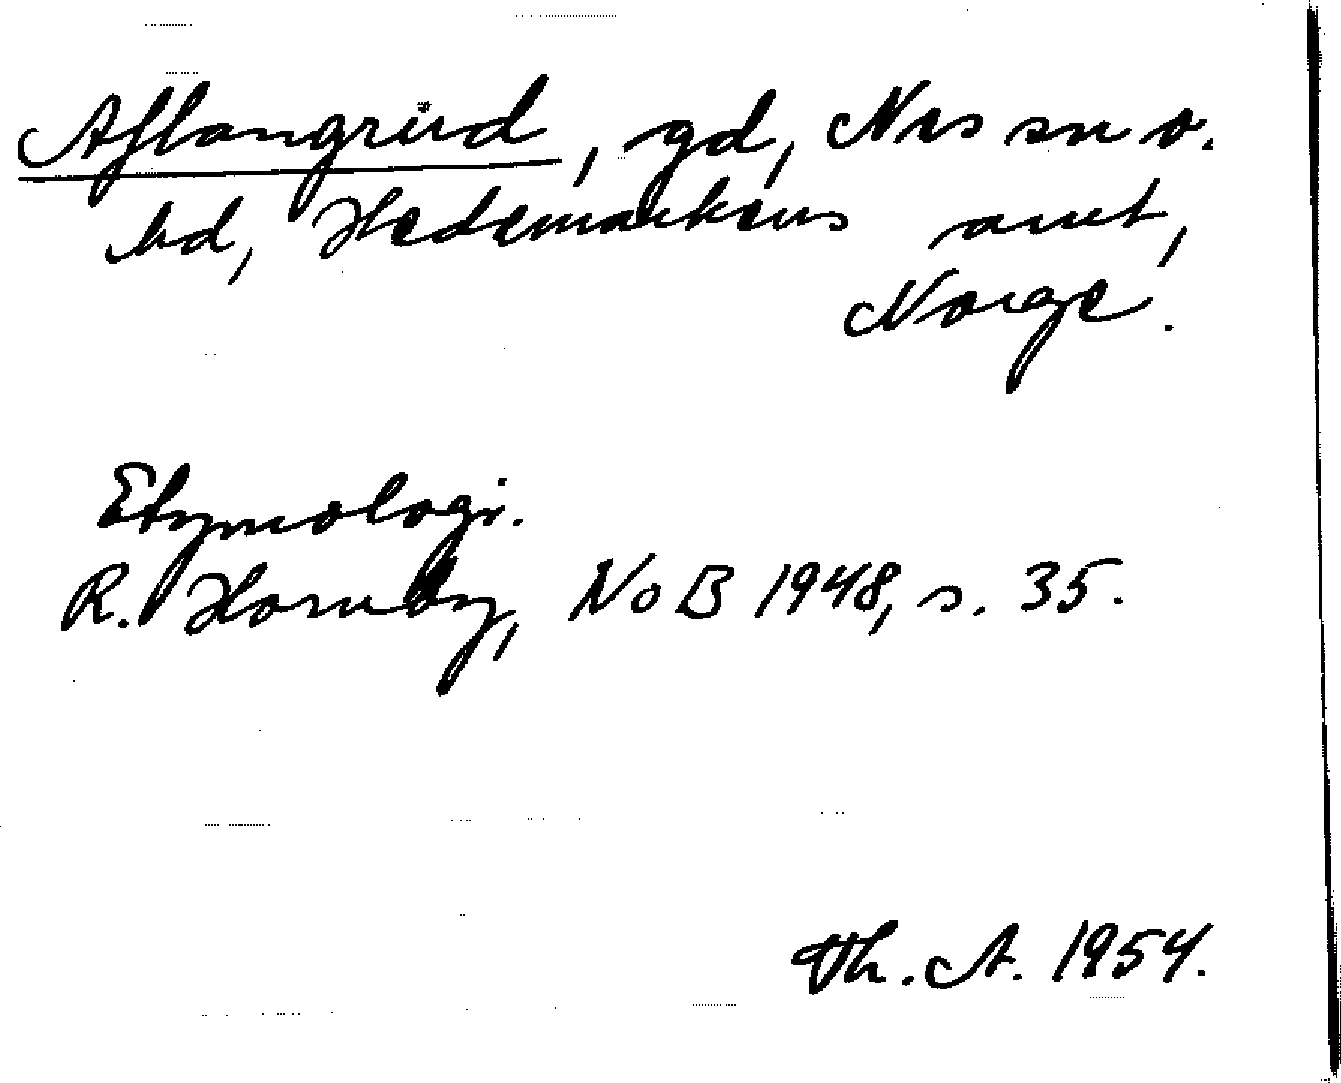 Aflangrud, gd, Nes sn o.
hd, Hedemarkens amt,
Norge.
Etymologi.
R. Hornby, NoB 1948, s. 35.
Th. A. 1954.